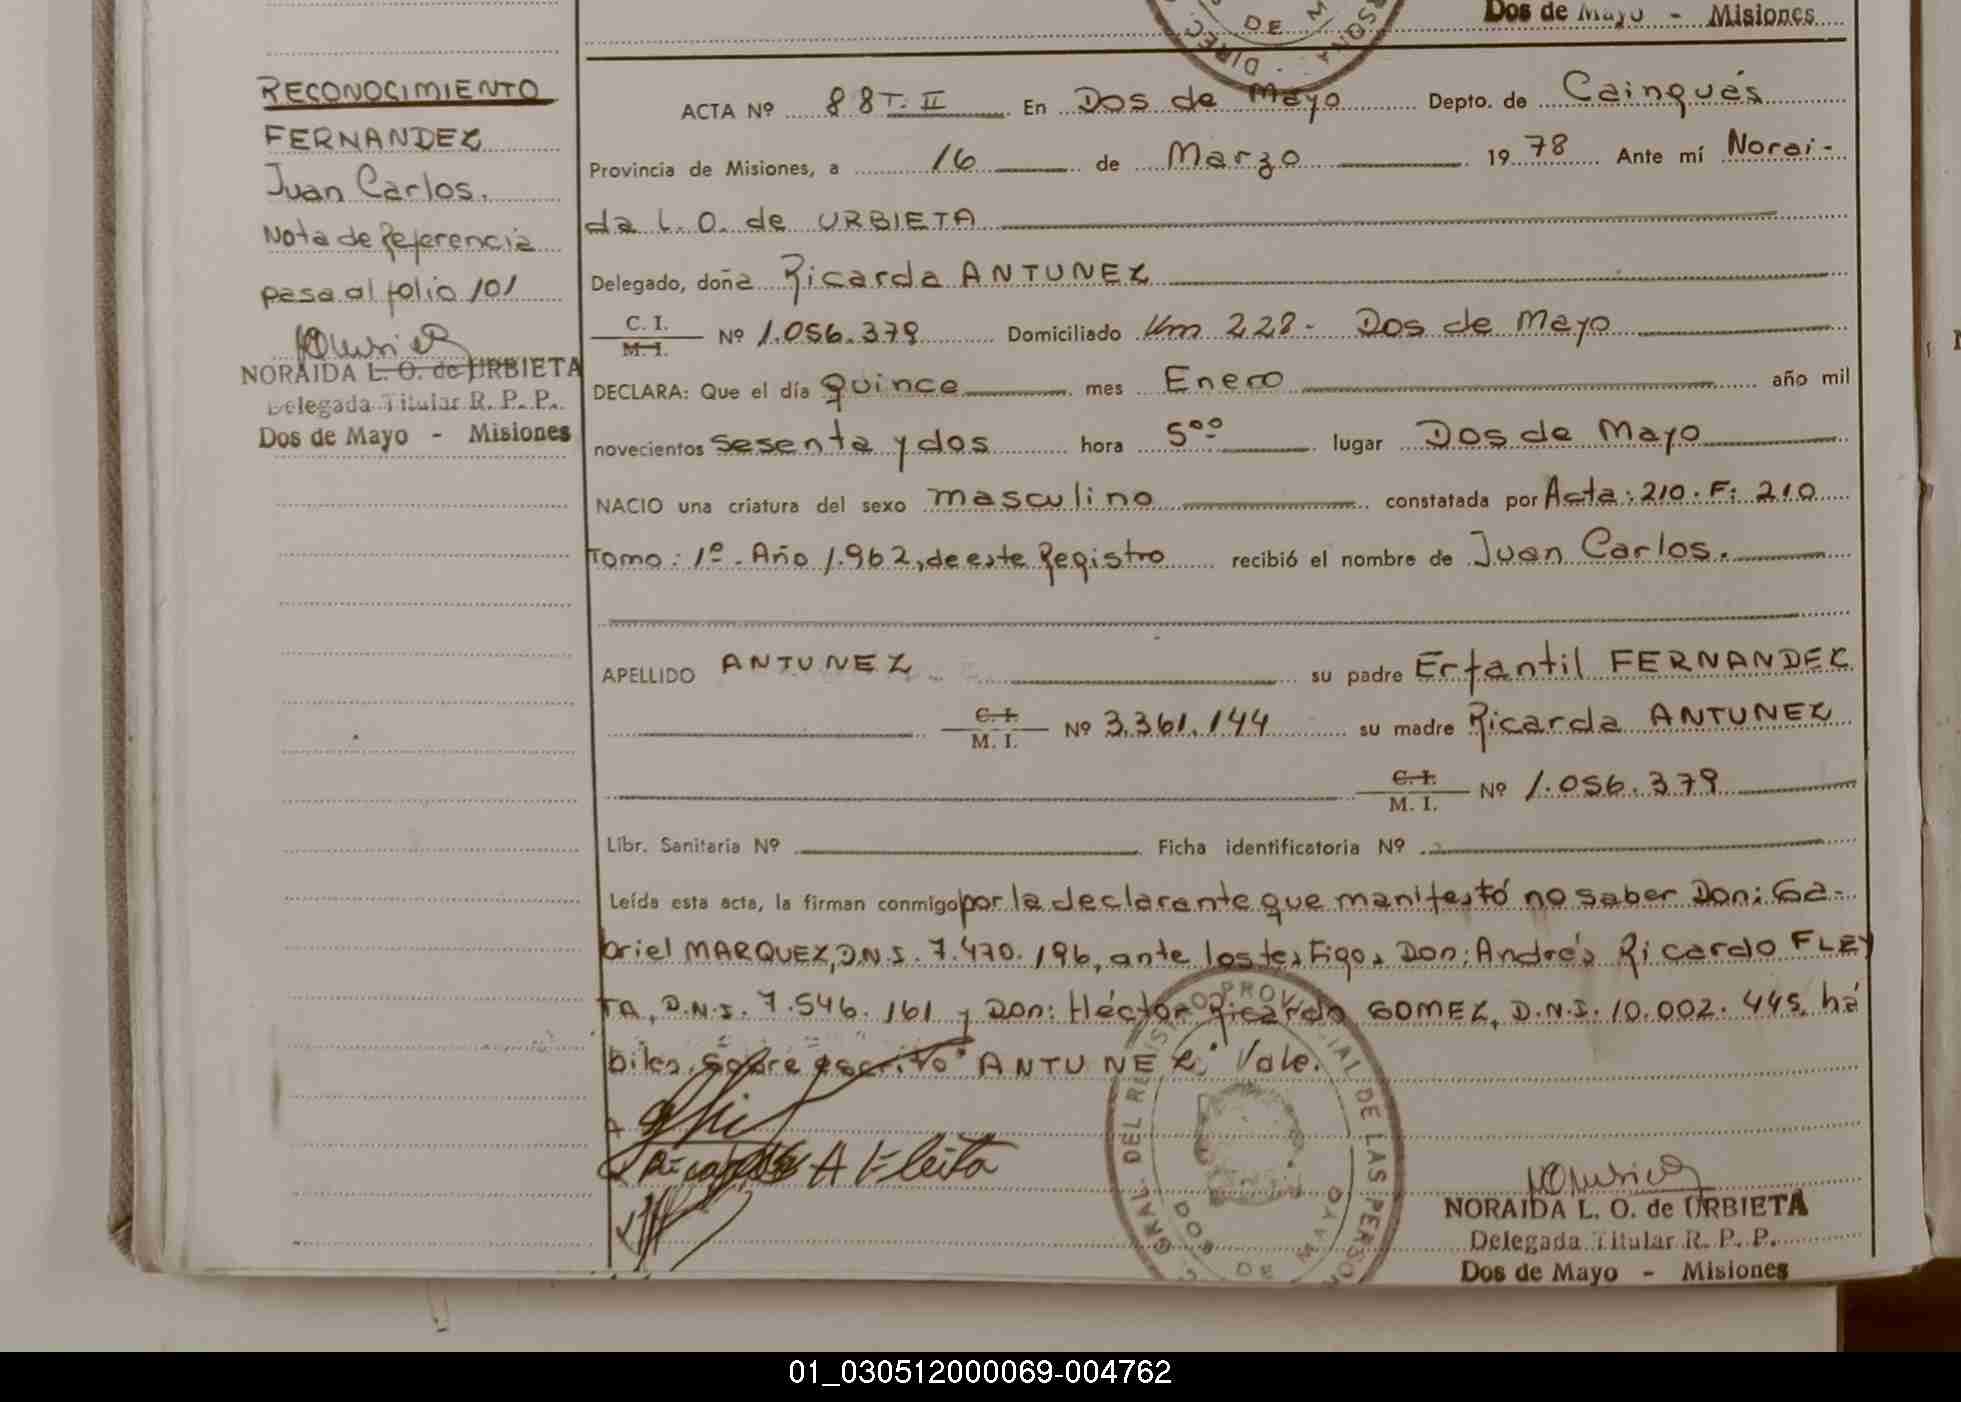 Dos de Mayo - Misiones
RECONOCIMIENTO
FERNANDEZ
Juan Carlos.
Nota de Referencia
pasa al folio 101
NORAIDA L. O. de URBIETA
Delegada Titular R. P. P.
Dos de Mayo - Misiones
ACTA Nº 88 T. II En Dos de Mayo Depto. de Cainguás
Provincia de Misiones, a 16 de Marzo 1978 Ante mí Norai-
da L. O. de URBIETA
Delegado, doña Ricarda ANTUNEZ
C. I. M. I. Nº 1.056.379 Domiciliado Km 228- Dos de Mayo
DECLARA: Que el día quince mes Enero año mil
novecientos sesenta y dos hora 5⁰⁰ lugar Dos de Mayo
NACIO una criatura del sexo masculino constatada por Acta: 210. F: 210
Tomo: 1º. Año 1.962, de este Registro recibió el nombre de Juan Carlos.
APELLIDO ANTUNEZ su padre Erfantil FERNANDEZ
C. I. M. I. Nº 3.361.144 su madre Ricarda ANTUNEZ
C. I. M. I. Nº 1.056.379
Libr. Sanitaria Nº Ficha identificatoria Nº
Leída esta acta, la firman conmigo por la declarante que manifestó no saber Don: Ga-
briel MARQUEZ, D.N.I. 7.470.196, ante los testigos Don: Andrés Ricardo FLEY
TA, D.N.I. 7.546.161 y Don: Héctor Ricardo GOMEZ, D.N.I. 10.002.445, há
biles. sobre escrito "ANTUNEZ" Vale.
A Fleita
GRAL. DEL REGISTRO PROVINCIAL DE LAS PERSON
DOS DE MAYO
NORAIDA L. O. de URBIETA
Delegada Titular R. P. P.
Dos de Mayo - Misiones
01_030512000069-004762